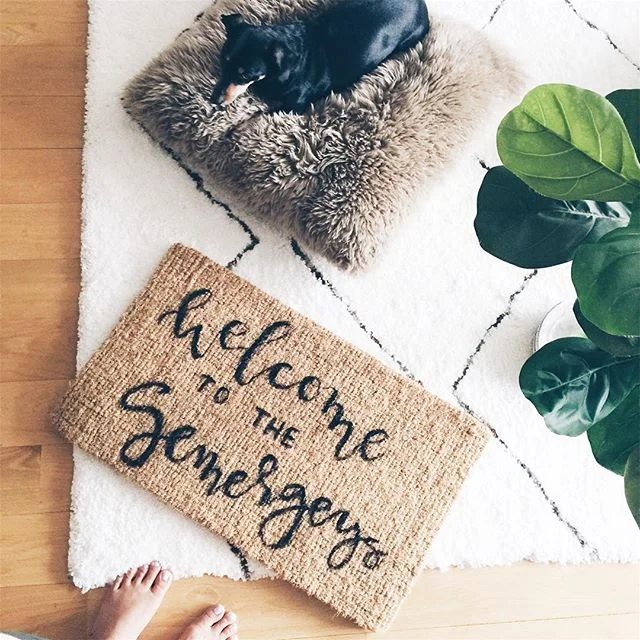 welcome
TO THE
Semergeys